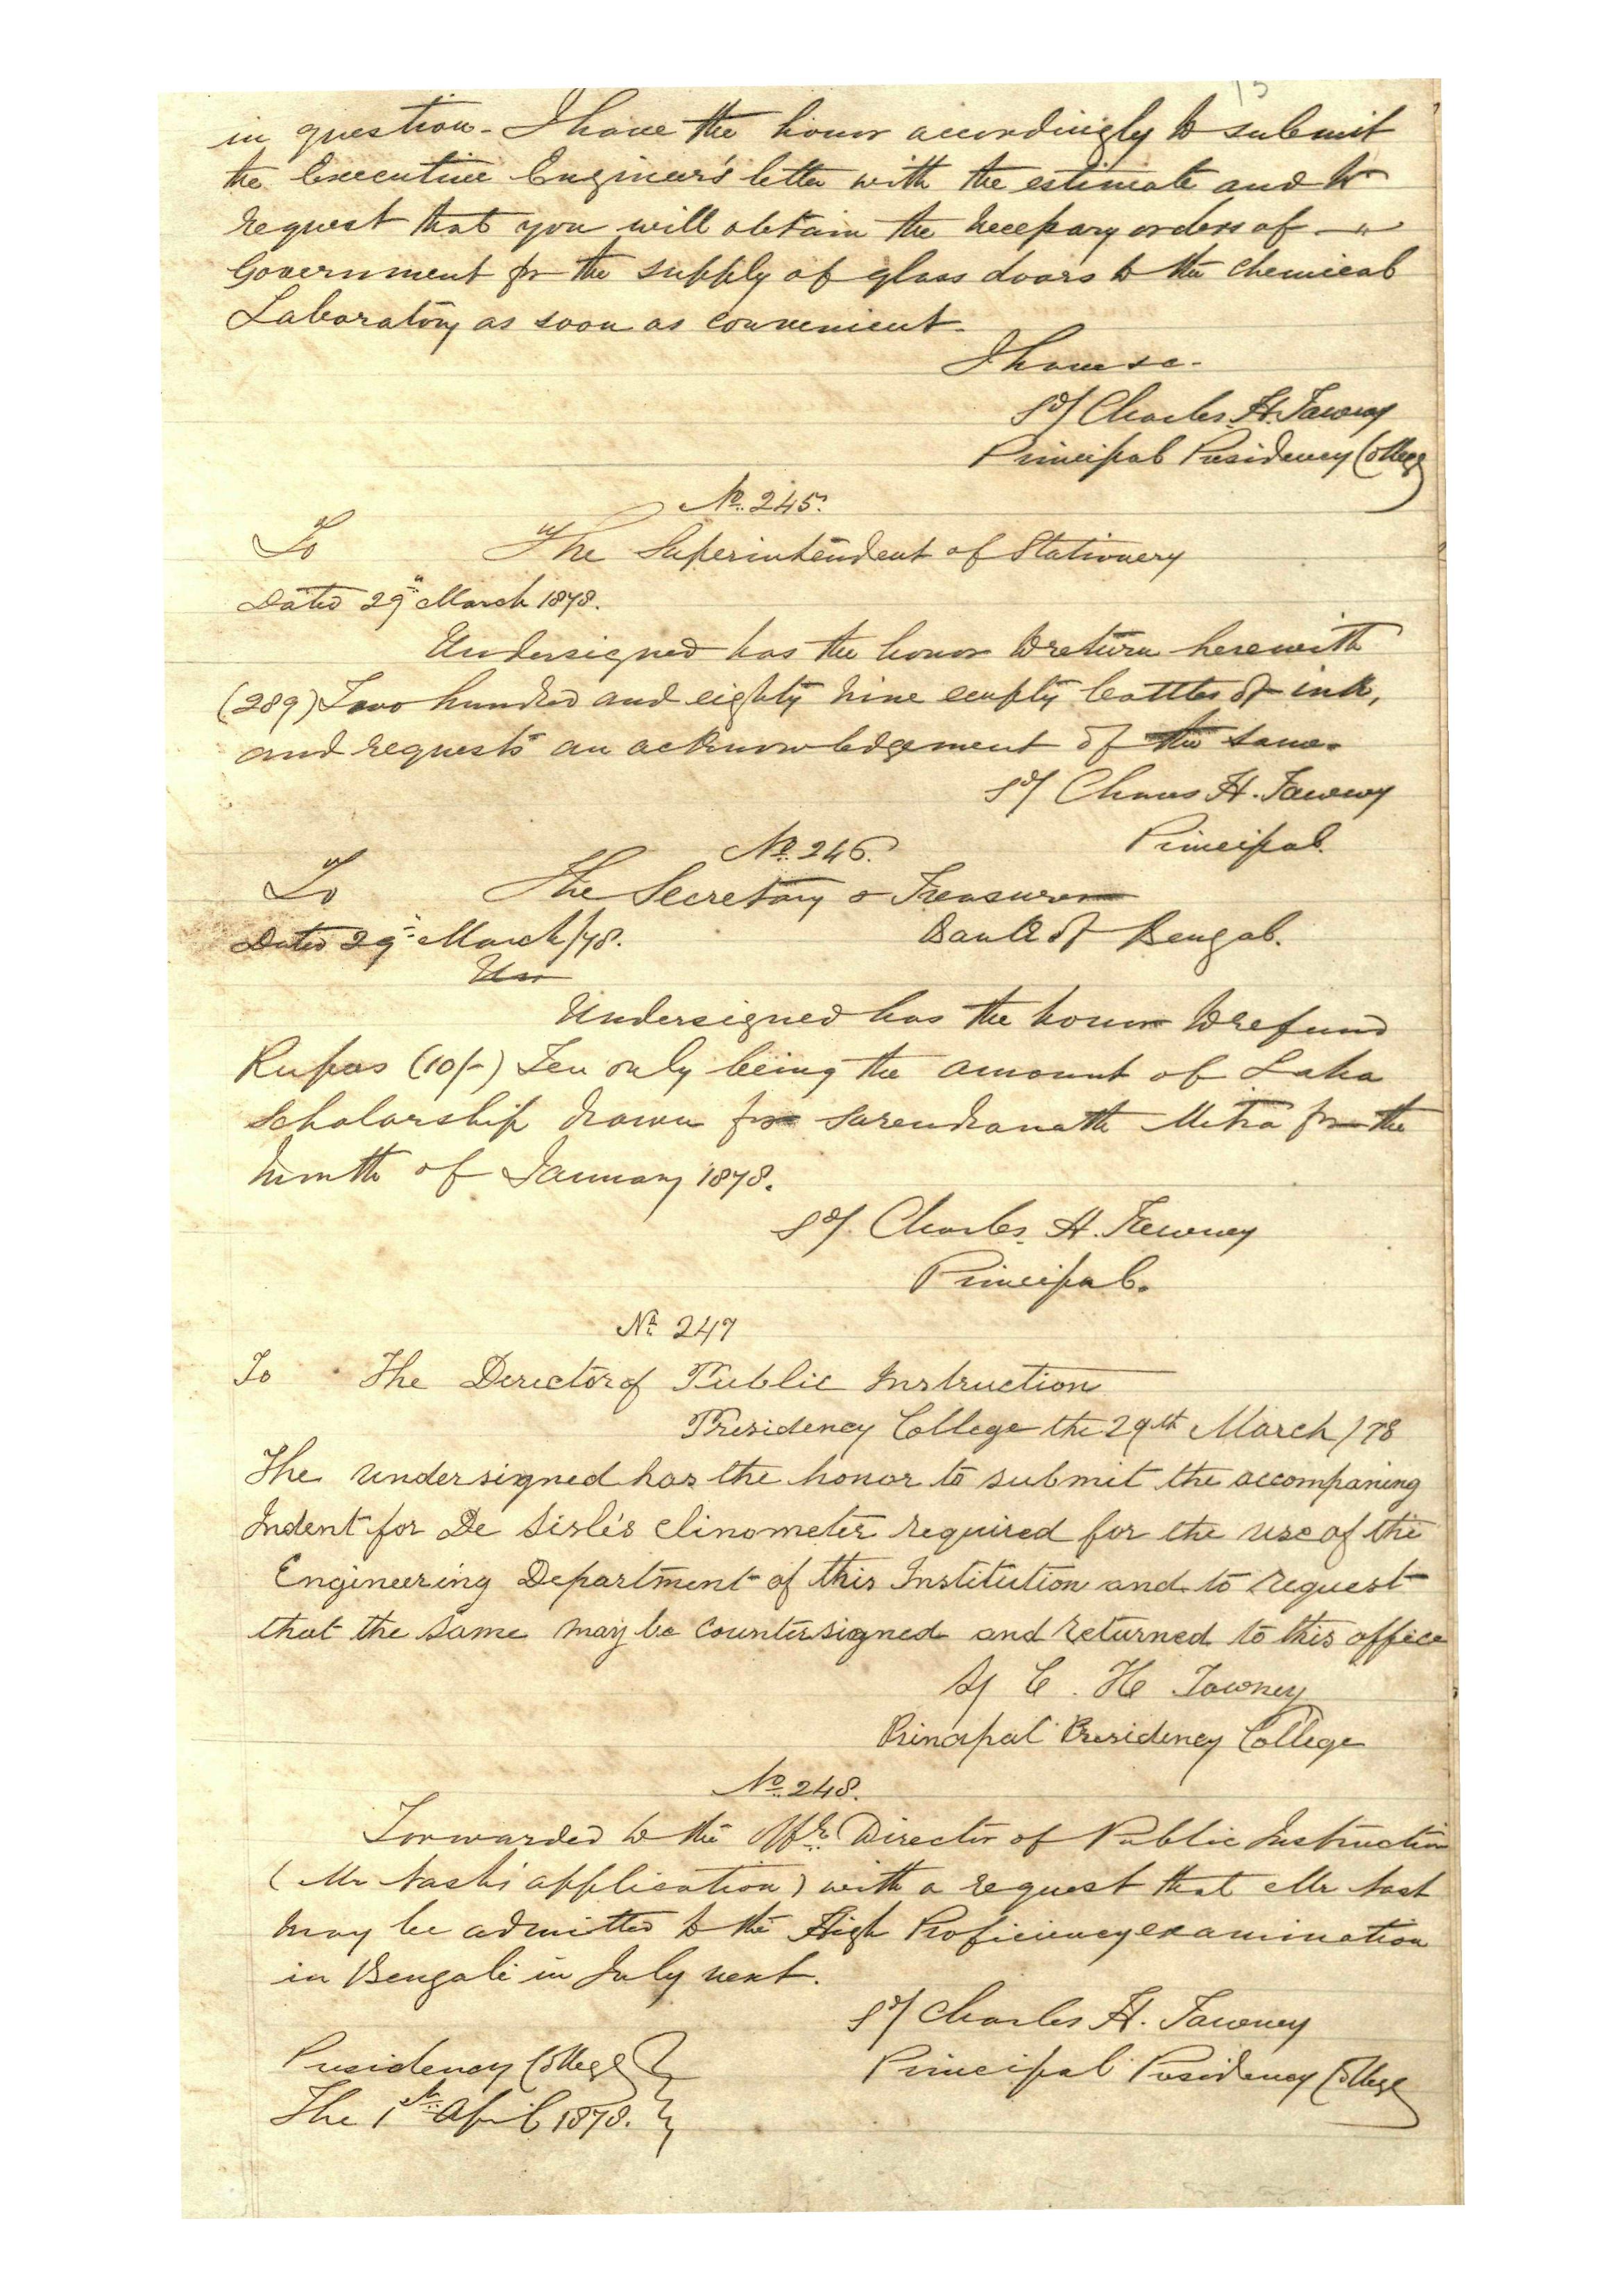 15
in question - I have the honor accordingly to submit
the Executive Engineer's letter with the estimate and to
request that you will obtain the necessary orders of
Government for the supply of glass doors to the Chemical
Laboratory as soon as convenient.
I have &c.
Sd/ Charles H. Tawney
Principal Presidency College
No. 245.
To The Superintendent of Stationery
Dated 29th March 1878.
Undersigned has the honor to return herewith
(289) Two hundred and eighty nine empty bottles of ink,
and requests an acknowledgement of the same.
Sd/ Charles H. Tawney
Principal.
No. 246.
To The Secretary & Treasurer
Dated 29th March/78. Bank of Bengal.
Un
Undersigned has the honor to refund
Rupees (10/-) Ten only being the amount of Laha
Scholarship drawn for Surendranath Mitra for the
month of January 1878.
Sd/. Charles. H. Tawney
Principal.
No. 247
To The Director of Public Instruction
Presidency College the 29th March/78
The undersigned has the honor to submit the accompaning
Indent for De Lisle's clinometer required for the use of the
Engineering Department of this Institution and to request
that the same may be countersigned and returned to this office
Sd/ C. H. Tawney
Principal Presidency College
No. 248.
Forwarded to the Offg. Director of Public Instruction
(Mr Nash's application) with a request that Mr Nash
may be admitted to the High Proficiency examination
in Bengali in July next.
Sd/ Charles H. Tawney
Presidency College Principal Presidency College
The 1st April 1878.